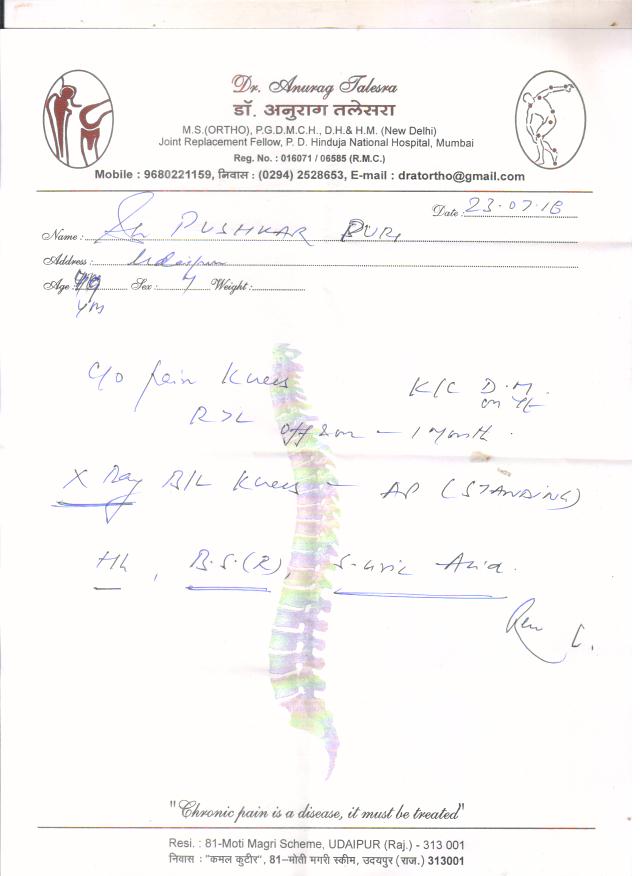 Dr. Anurag Talesra
डॉ. अनुराग तलेसरा
M.S.(ORTHO), P.G.D.M.C.H., D.H.& H.M. (New Delhi)
Joint Replacement Fellow, P. D. Hinduja National Hospital, Mumbai
Reg. No. : 016071 / 06585 (R.M.C.)
Mobile : 9680221159, निवास : (0294) 2528653, E-mail : dratortho@gmail.com
Date : 23.07.18
Name : PUSHKAR PURI
Address : Udaipur
Age : Sex : Weight :
C/O pain Knees K/C D.M.
R>L on
off & on - 1 month.
X Ray B/L Knees - AP (STANDING)
Hb, B.S.(R), S. Uric Acid.
"Chronic pain is a disease, it must be treated"
Resi. : 81-Moti Magri Scheme, UDAIPUR (Raj.) - 313 001
निवास : "कमल कुटीर", 81-मोती मगरी स्कीम, उदयपुर (राज.) 313001